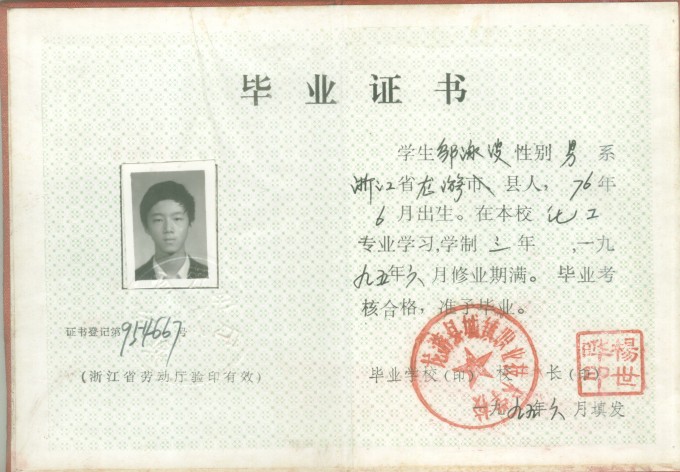 毕业证书
学生邹冰波性别男系
浙江省龙游市、县人，76年
6月出生。在本校化工
专业学习,学制三年 ,一九
九五年六月修业期满。毕业考
核合格，准予毕业。
证书登记第954667号
(浙江省劳动厅验印有效)
毕业学校(印) 校 长(印)
一九九五年六月填发